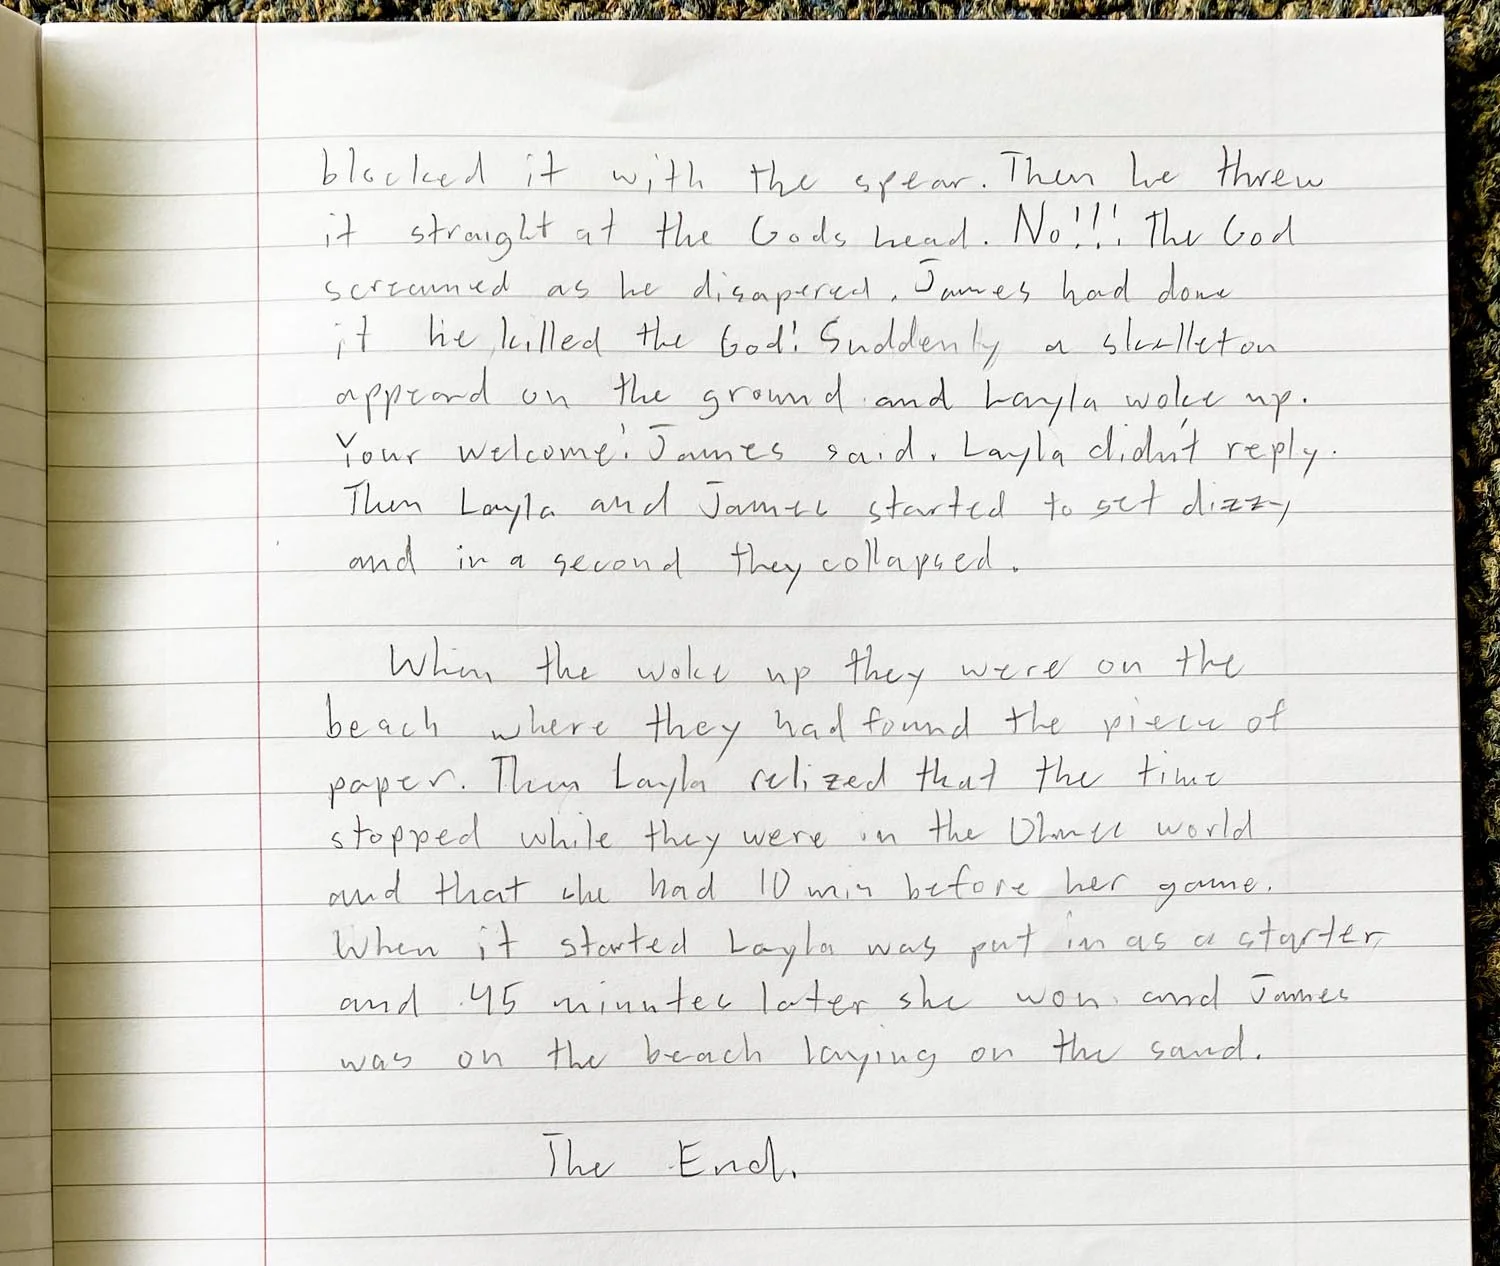 blocked it with the spear. Then he threw
it straight at the Gods head. No!!! The God
screamed as he disapered. James had done
it he killed the God! Suddenly a skelleton
appeard on the ground and Layla woke up.
Your welcome! James said. Layla didn't reply.
Then Layla and James started to get dizzy
and in a second they collapsed.
When the woke up they were on the
beach where they had found the piece of
paper. Then Layla relized that the time
stopped while they were in the Olmec world
and that she had 10 min before her game.
When it started Layla was put in as a starter
and 45 minutes later she won and James
was on the beach laying on the sand.
The End.